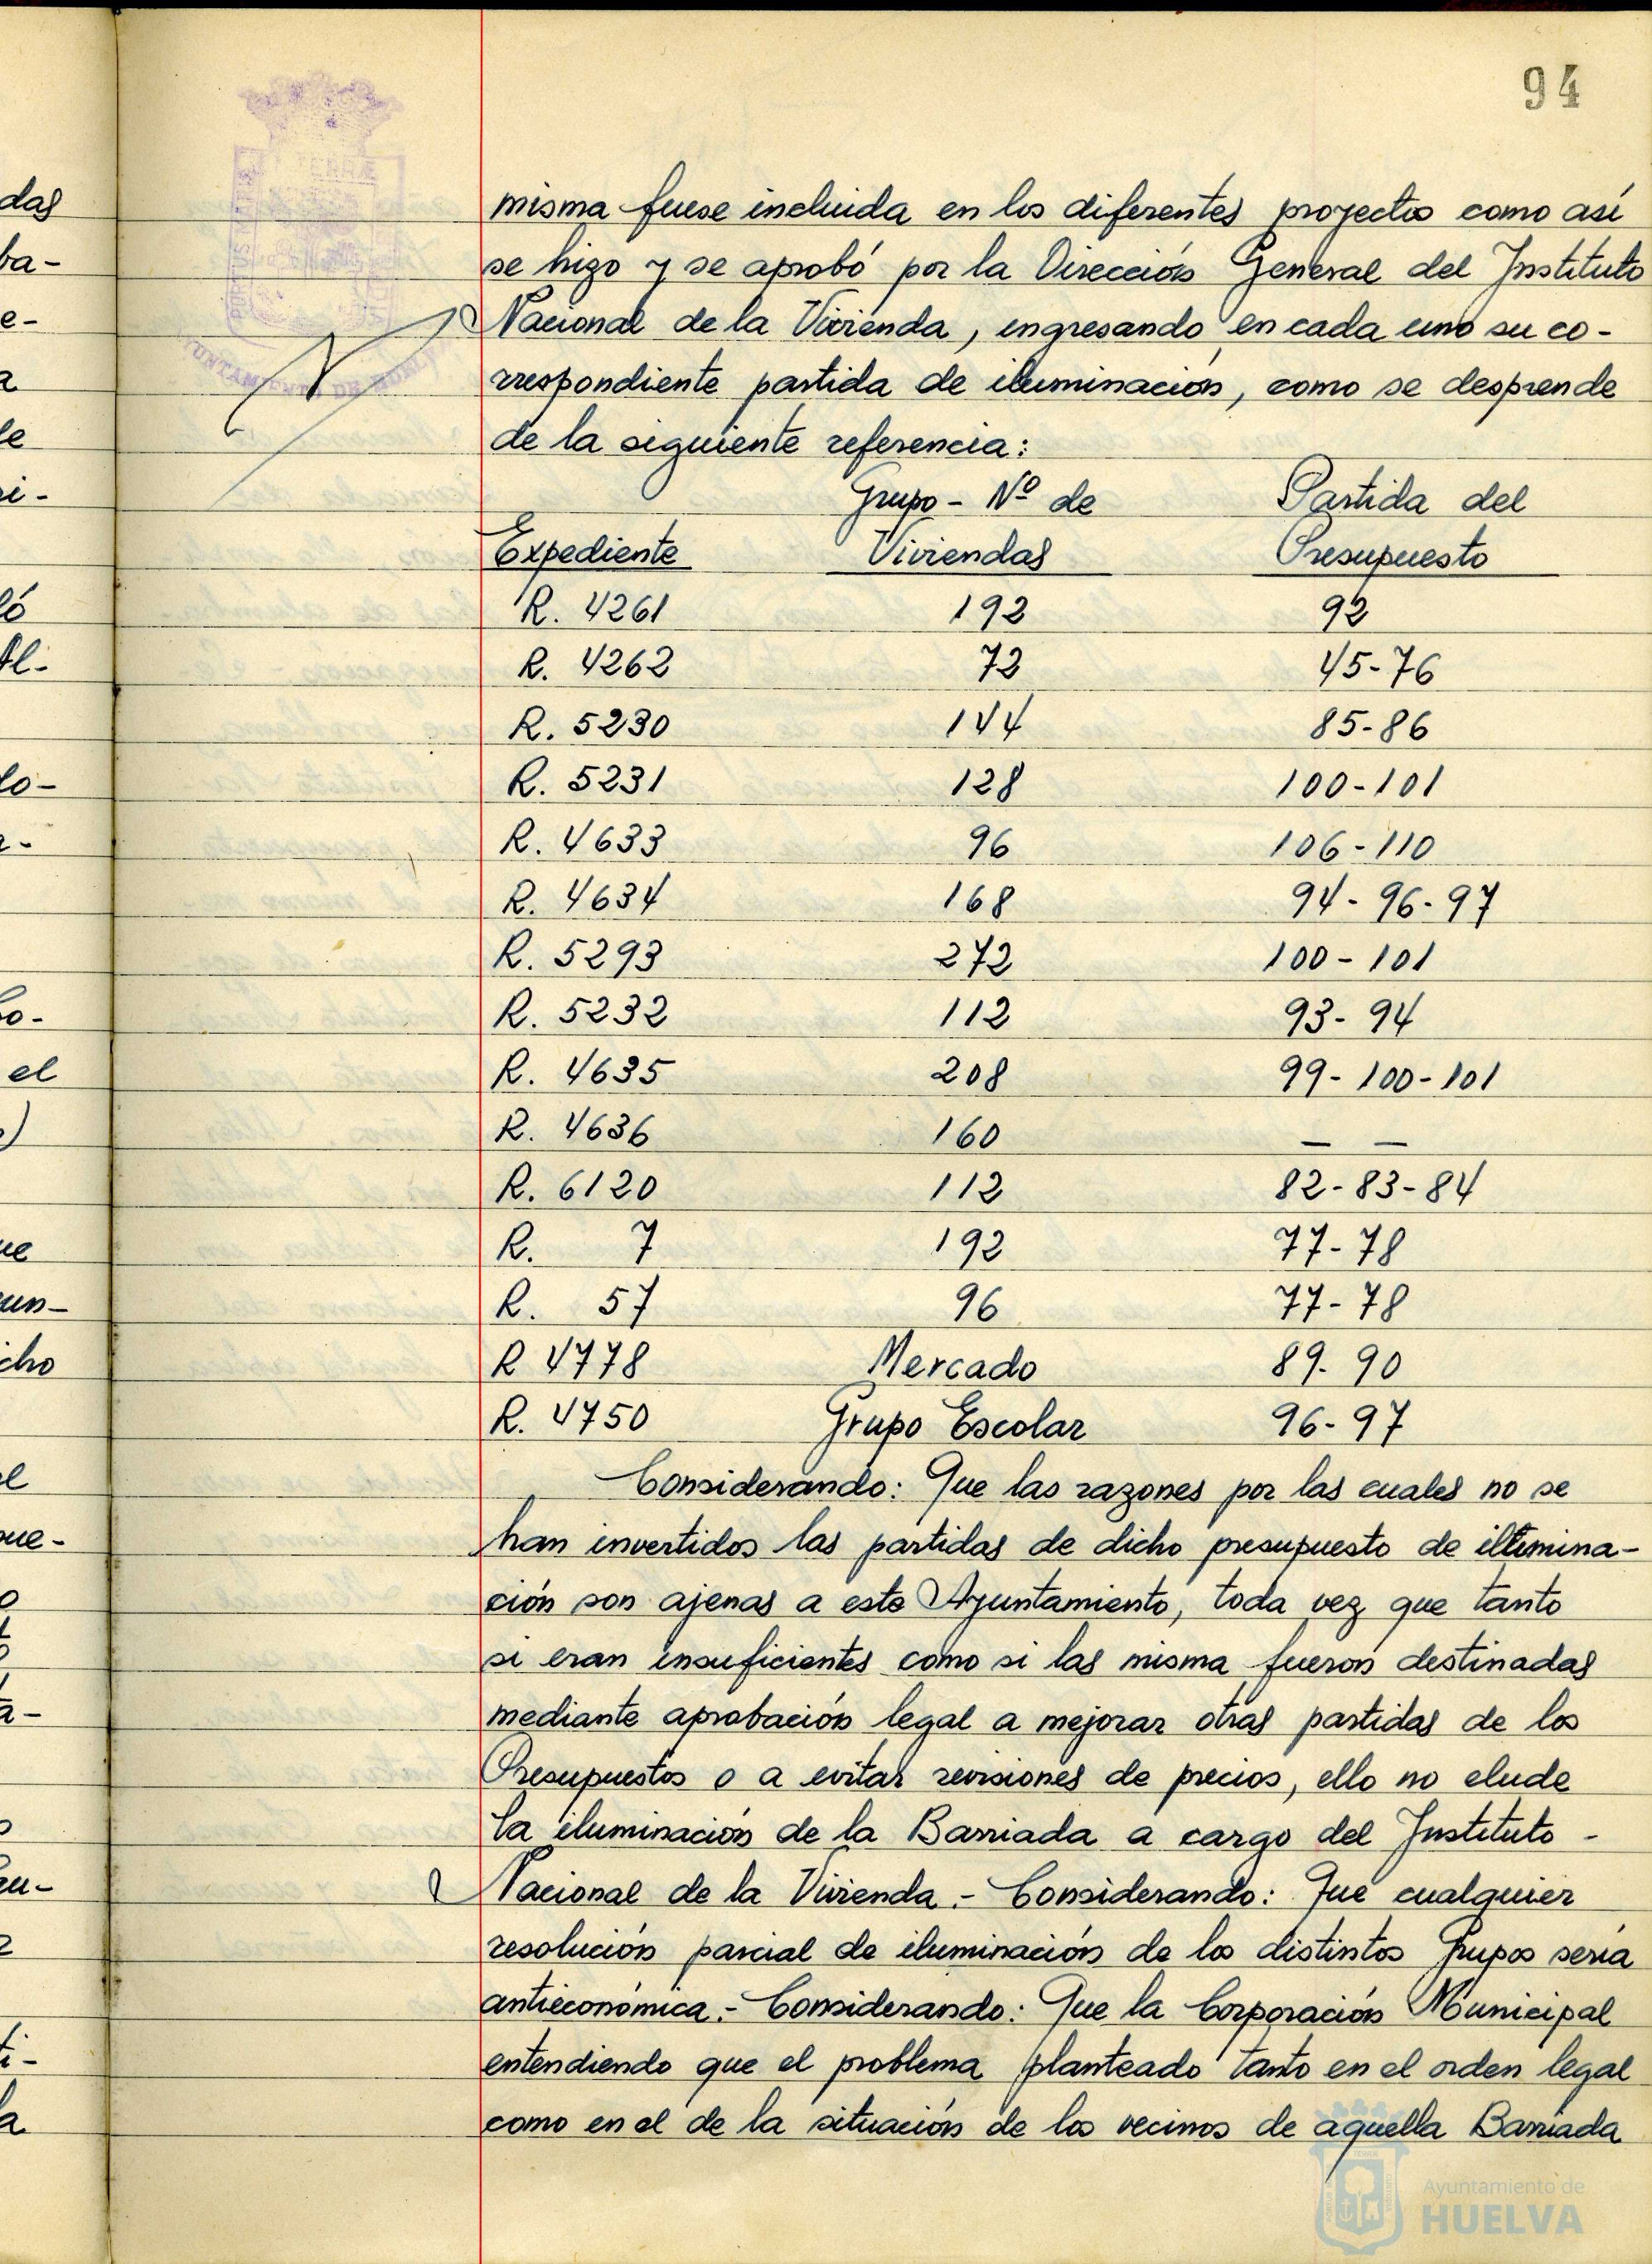 94
misma fuese incluida en los diferentes proyectos como así
se hizo y se aprobó por la Dirección General del Instituto
Nacional de la Vivienda, ingresando en cada uno su co-
rrespondiente partida de iluminación, como se desprende
de la siguiente referencia:
Grupo - Nº de Partida del
Expediente Viviendas Presupuesto
R. 4261 192 92
R. 4262 72 45-76
R. 5230 144 85-86
R. 5231 128 100-101
R. 4633 96 106-110
R. 4634 168 94-96-97
R. 5293 272 100-101
R. 5232 112 93-94
R. 4635 208 99-100-101
R. 4636 160 — —
R. 6120 112 82-83-84
R. 7 192 77-78
R. 57 96 77-78
R 4778 Mercado 89-90
R. 4750 Grupo Escolar 96-97
Considerando: Que las razones por las cuales no se
han invertidos las partidas de dicho presupuesto de ilumina-
ción son ajenas a este Ayuntamiento, toda vez que tanto
si eran insuficientes como si las misma fueron destinadas
mediante aprobación legal a mejorar otras partidas de los
Presupuestos o a evitar revisiones de precios, ello no elude
la iluminación de la Barriada a cargo del Instituto -
Nacional de la Vivienda.- Considerando: Que cualquier
resolución parcial de iluminación de los distintos Grupos sería
antieconómica.- Considerando: Que la Corporación Municipal
entendiendo que el problema planteado tanto en el orden legal
como en el de la situación de los vecinos de aquella Barriada
Ayuntamiento de
HUELVA